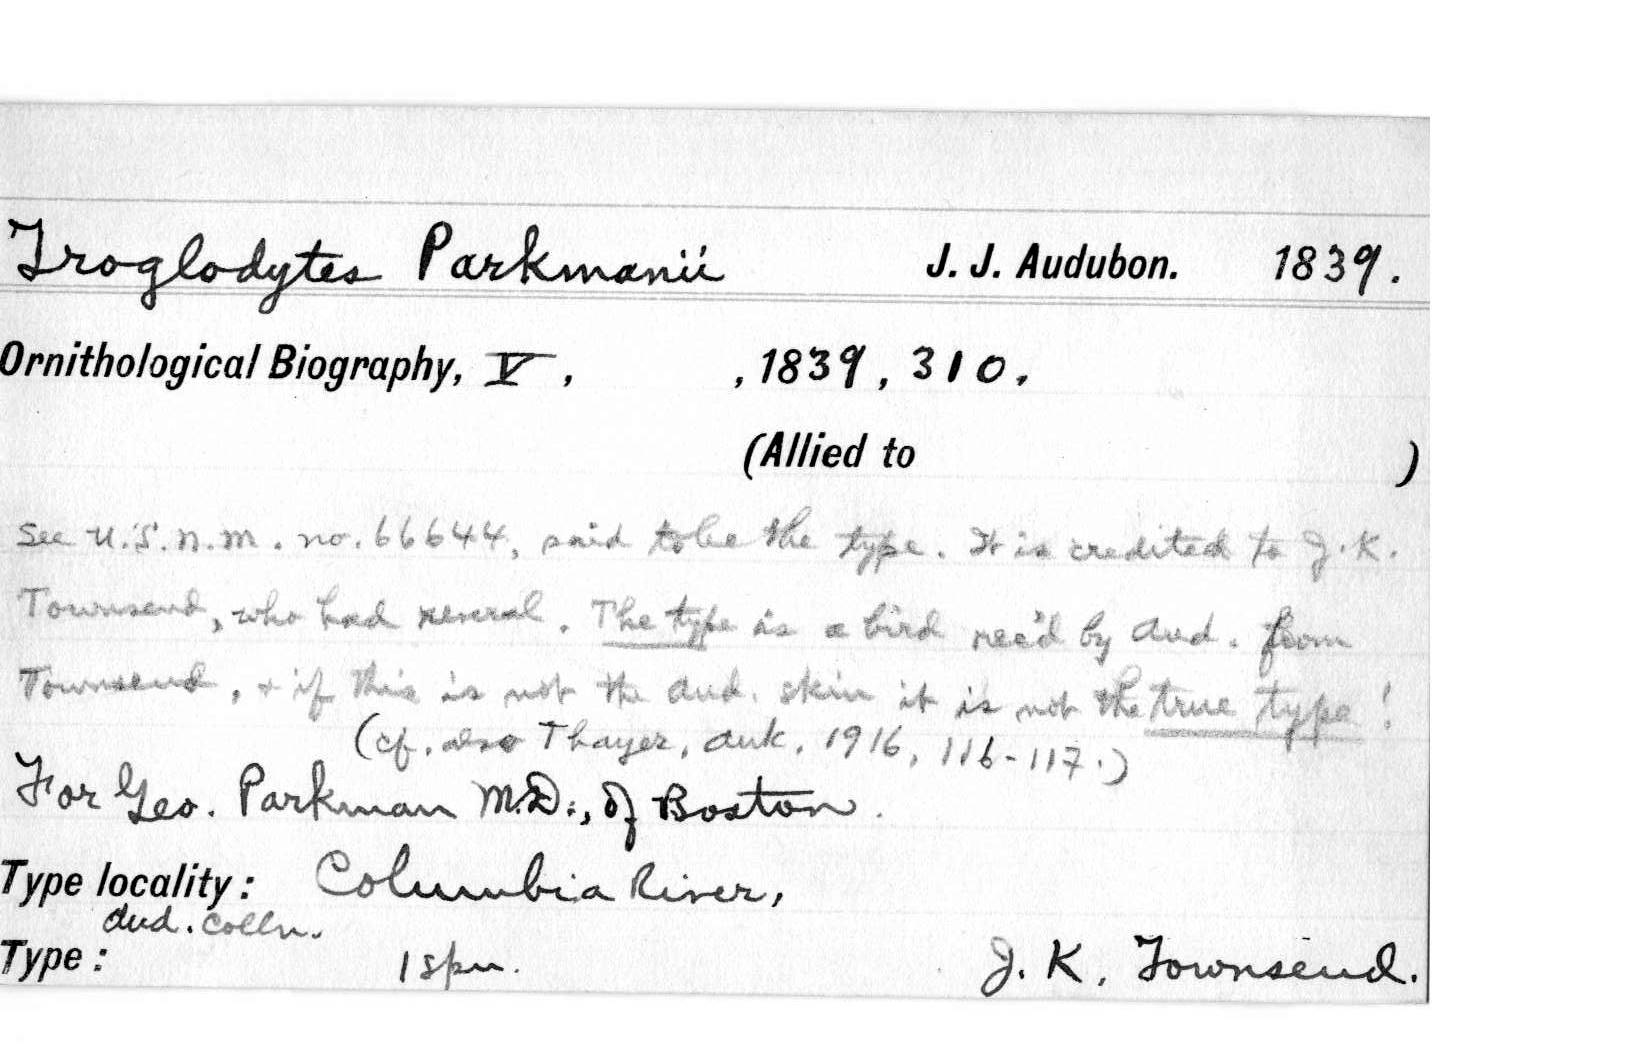 Troglodytes Parkmanii J. J. Audubon. 1839.
Ornithological Biography, V, , 1839, 310.
(Allied to )
See U.S.N.M. no. 66644, said to be the type. It is credited to J.K.
Townsend, who had several. The type is a bird rec'd by Aud. from
Townsend, + if this is not the Aud. skin it is not the true type!
(cf. also Thayer, Auk, 1916, 116-117.)
For Geo. Parkman M.D., of Boston.
Type locality: Columbia River,
Aud. Colln.
Type: 1 spm. J. K. Townsend.